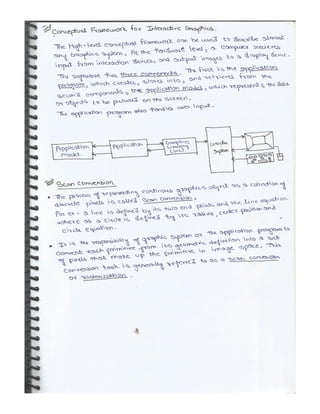 Conceptual Framework for Interactive Graphics.
The High-level conceptual framework can be used to describe almost
any Graphics system. At the hardware level, a computer receives
input from interaction devices, and output images to a display device.
The software has three components. The first is the application
program, which creates, stores into, and retrieves from the
second components, the application model, which represents the data
or objects to be pictured on the screen.
The application program also handles user input.
Application model
Application
Graphics
System
Scan Conversion
• The process of representing continuous graphics object as a collection of
discrete pixels is called Scan Conversion.
For ex - a line is defined by its two end points and the line equation
where as a circle is defined by its radius, center position and
circle equation.
• It is the responsibility of graphic system or the application program to
convert each primitive from its geometric definition into a set
of pixels that make up the primitive in image space. This
conversion task is generally referred to as a scan conversion
or rasterization.